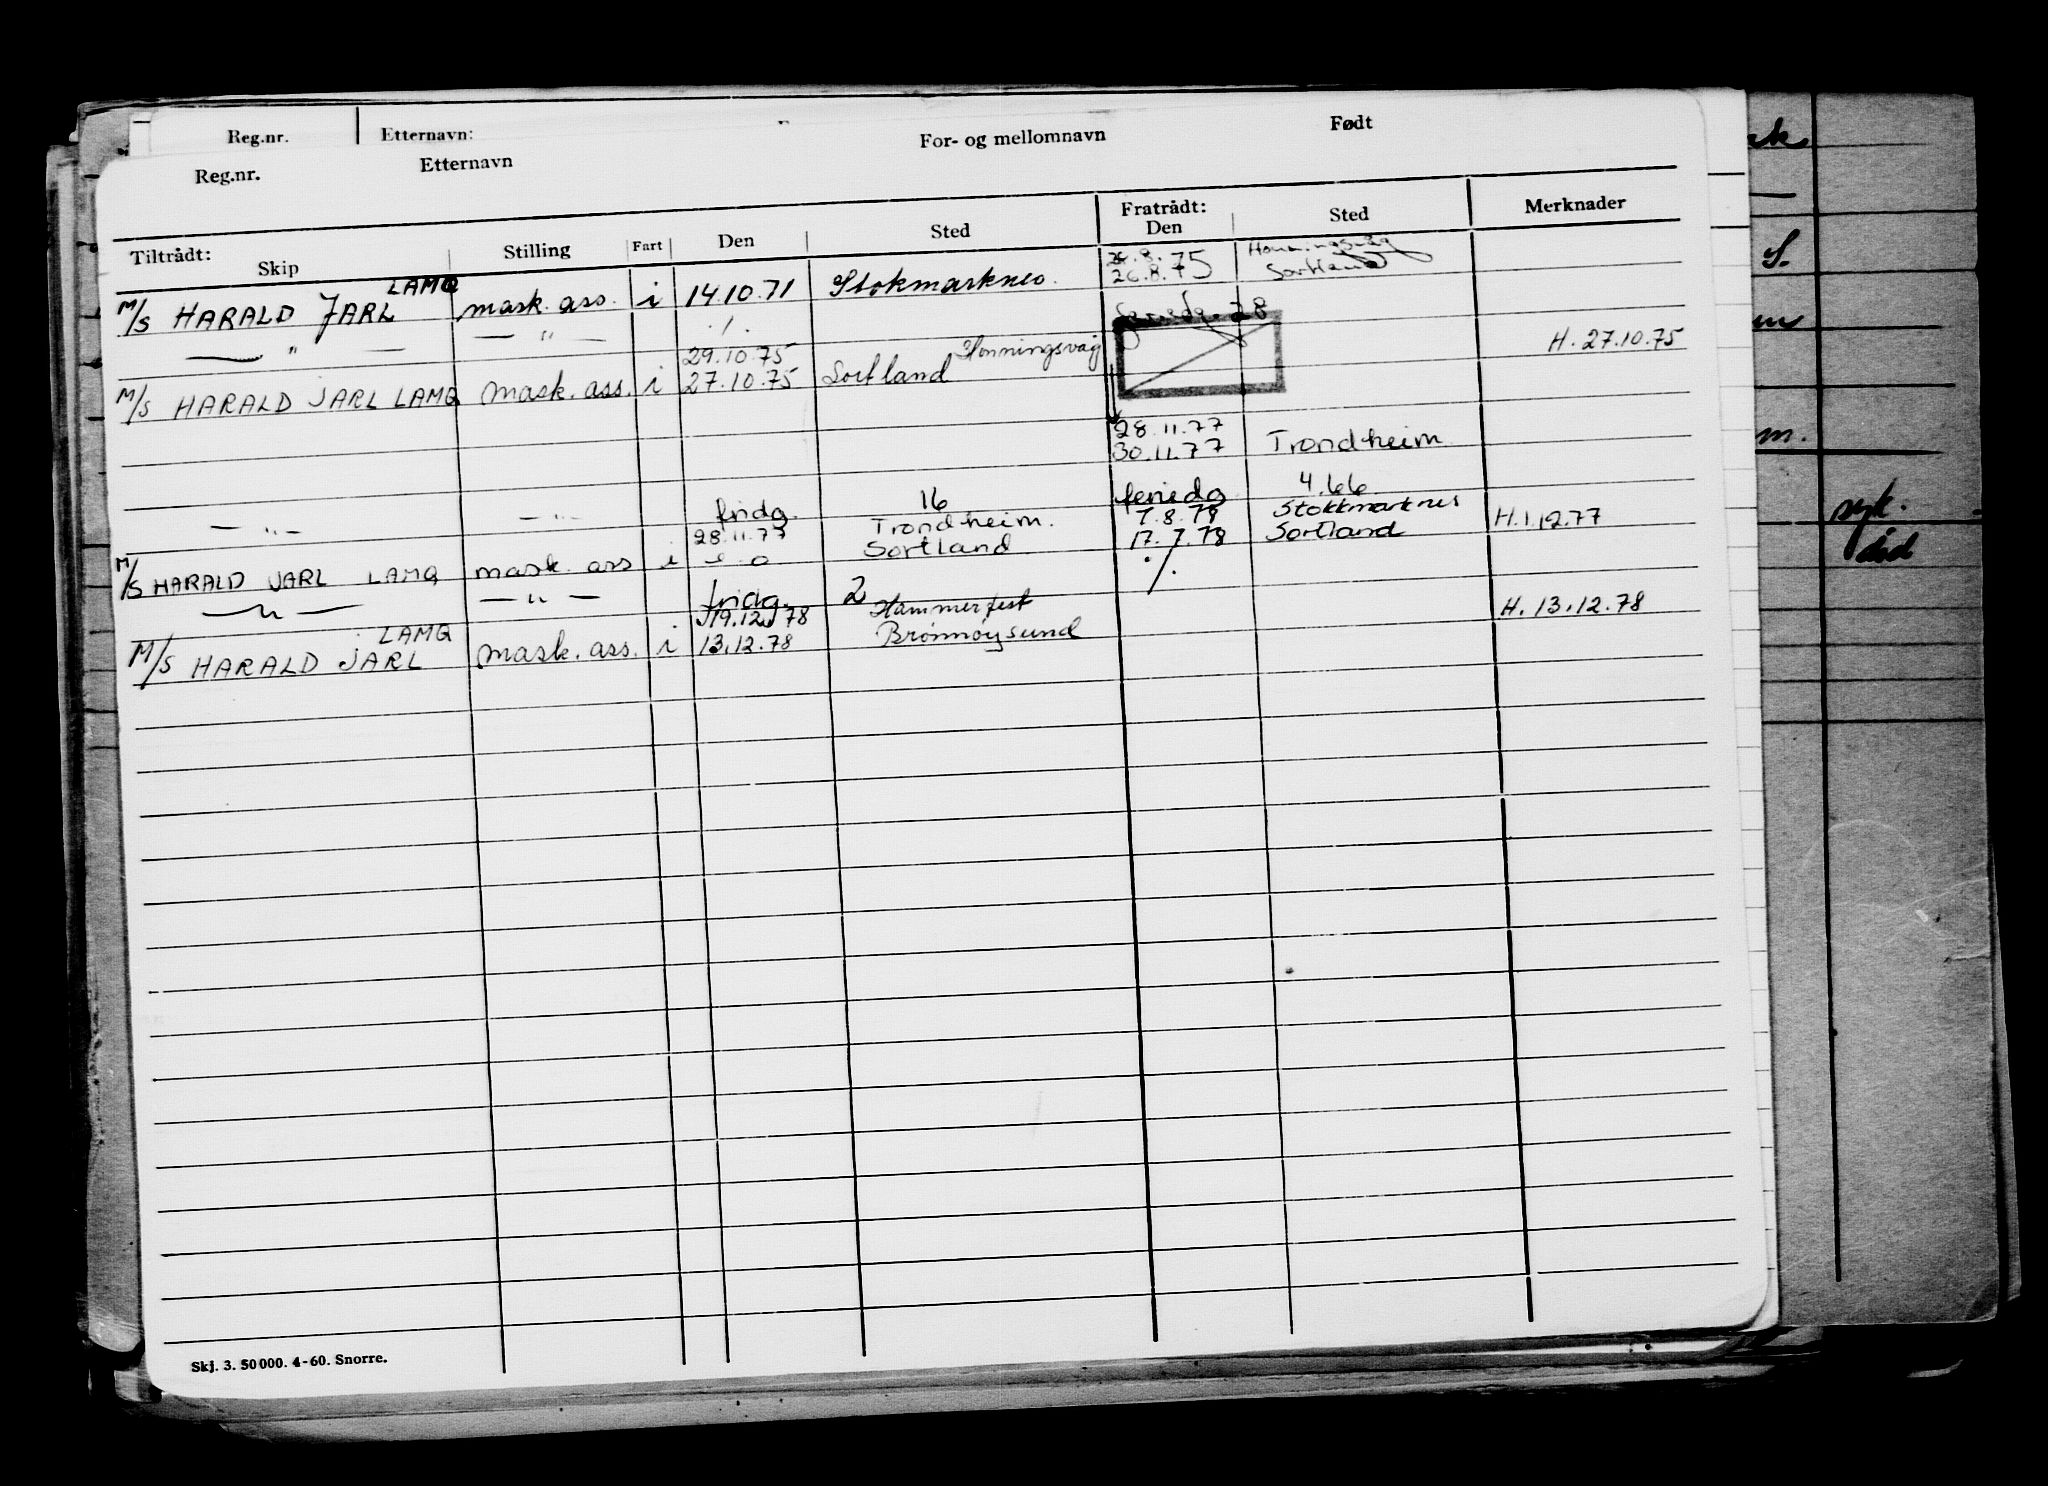 Reg.nr. Etternavn:
Reg.nr. Etternavn For- og mellomnavn Født
Tiltrådt: Skip Stilling Fart Den Sted Fratrådt: Den Sted Merknader
26.8.75 Honningsvåg
LAMQ 26.8.75 Sortland
M/S HARALD JARL mask. ass. i 14.10.71 Stokmarknes.
— " — — " — ./.
29.10.75 Honningsvåg H. 27.10.75
M/S HARALD JARL LAMQ mask. ass. i 27.10.75 Sortland
28.11.77
30.11.77 Trondheim
— " — — " — fridg. 16 feriedg. 4.66
28.11.77 Trondheim. 7.8.78 Stokkmarknes
M/S HARALD JARL LAMQ mask. ass i Sortland 17.7.78 Sortland H.1.12.77
— " — — " — fridg. 2 ./.
LAMQ 19.12.78 Hammerfest H. 13.12.78
M/S HARALD JARL mask. ass. i 13.12.78 Brønnøysund
Skj. 3. 50 000. 4-60. Snorre.
S.
m.
syk.